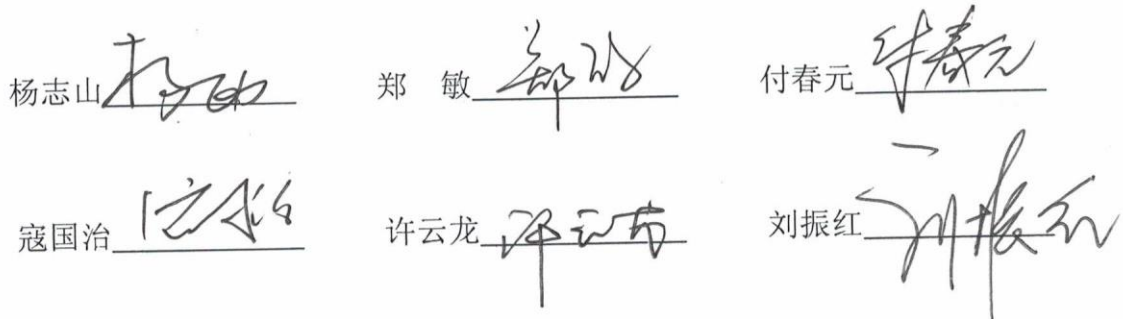 杨志山 郑 敏 郑敏 付春元 付春元
寇国治 许云龙 许云龙 刘振红 刘振红